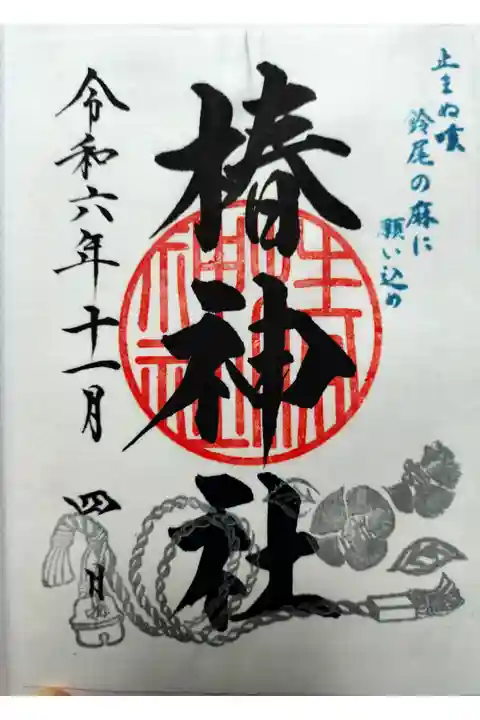 止まぬ咳
鈴尾の麻に
願い込め
椿神社
令和六年十一月四日